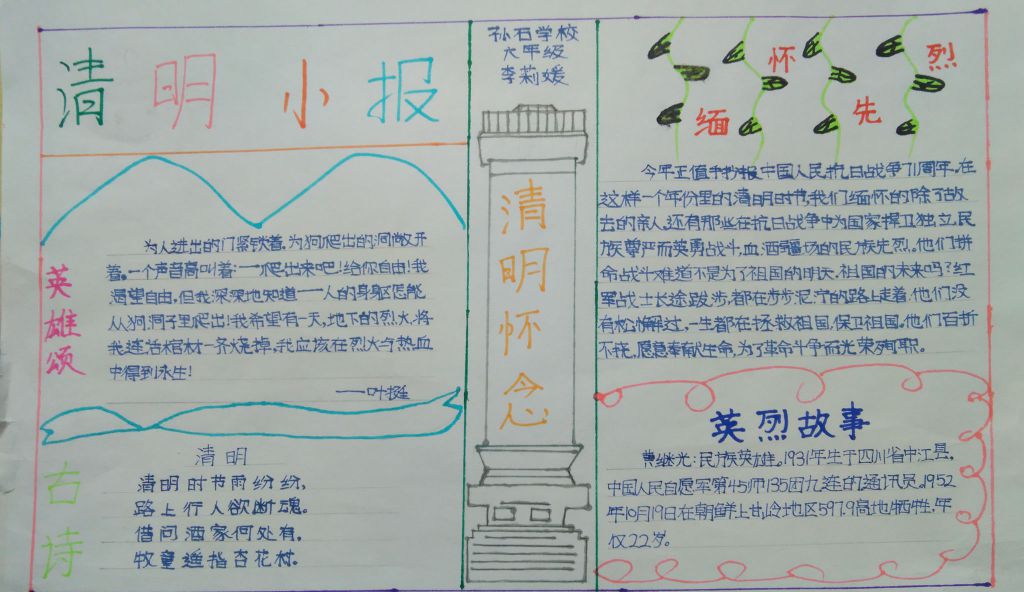 清明小报
英雄颂
为人进出的门紧锁着,为狗爬出的洞敞开
着。一个声音高叫着:——爬出来吧!给你自由!我
渴望自由,但我深深地知道——人的身躯怎能
从狗洞子里爬出!我希望有一天,地下的烈火,将
我连活棺材一齐烧掉,我应该在烈火与热血
中得到永生!
——叶挺
古诗
清明
清明时节雨纷纷,
路上行人欲断魂。
借问酒家何处有,
牧童遥指杏花村。
孙石学校
六年级
李莉媛
清明怀念
缅怀先烈
今年正值手抄报中国人民抗日战争71周年。在
这样一个年份里的清明时节,我们缅怀的除了故
去的亲人,还有那些在抗日战争中为国家捍卫独立,民
族尊严而英勇战斗,血洒疆场的民族先烈。他们拼
命战斗难道不是为了祖国的明天,祖国的未来吗?红
军战士长途跋涉,都在步步泥泞的路上走着,他们没
有松懈过,一生都在拯救祖国,保卫祖国。他们百折
不挠,愿意奉献生命,为了革命斗争而光荣殉职。
英烈故事
黄继光:民族英雄。1931年生于四川省中江县,
中国人民自愿军第45师135团九连的通讯员。1952
年10月19日在朝鲜上甘岭地区597.9高地牺牲,年
仅22岁。